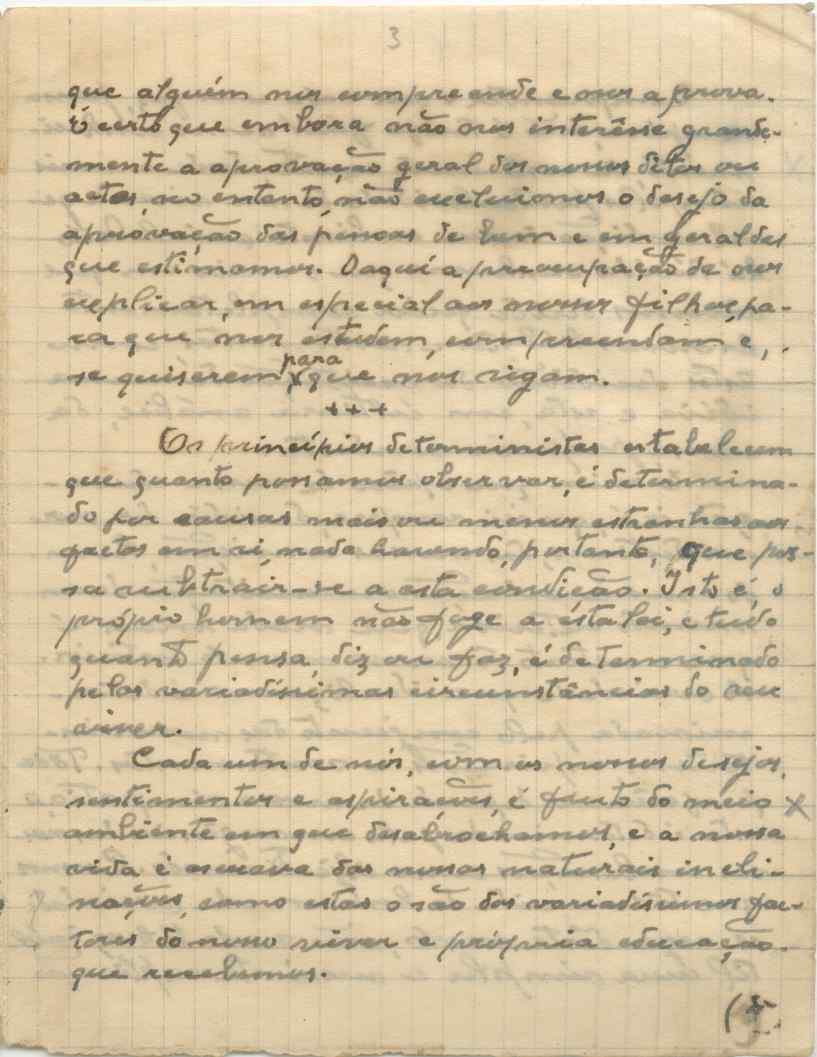 3
que alguém nos compreende e nos aprova.
É certo que embora não nos interêsse grande-
mente a aprovação geral dos nossos ditos ou
actos, no entento, não excluimos o desejo da
aprovação das pessoas de bem e em geral das
que estimamos. Daquí a preocupação de nos
explicar, em especial aos nossos filhos, pa-
ra que nos estudem, compreendam e,
se quiserem para que nos sigam.
+++
Os princípios deterministas estabelecem
que quanto possamos observar, é determina-
do por causas mais ou menos estranhas aos
factos em si, nada havendo, portanto, que pos-
sa subtraír-se a esta condição. Isto é, o
próprio homem não foge a ésta lei, e tudo
quanto pensa, diz ou faz, é determinado
pelas variadíssimas circunstâncias do seu
viver.
Cada um de nós, com os nossos desejos,
sentimentos e aspirações, é fruto do meio x
ambiente em que desabrochamos, e a nossa
vida é escrava das nossas naturais incli-
nações, como estas o são dos variadíssimos fac-
tores do nosso viver e própria educação
que recebemos.